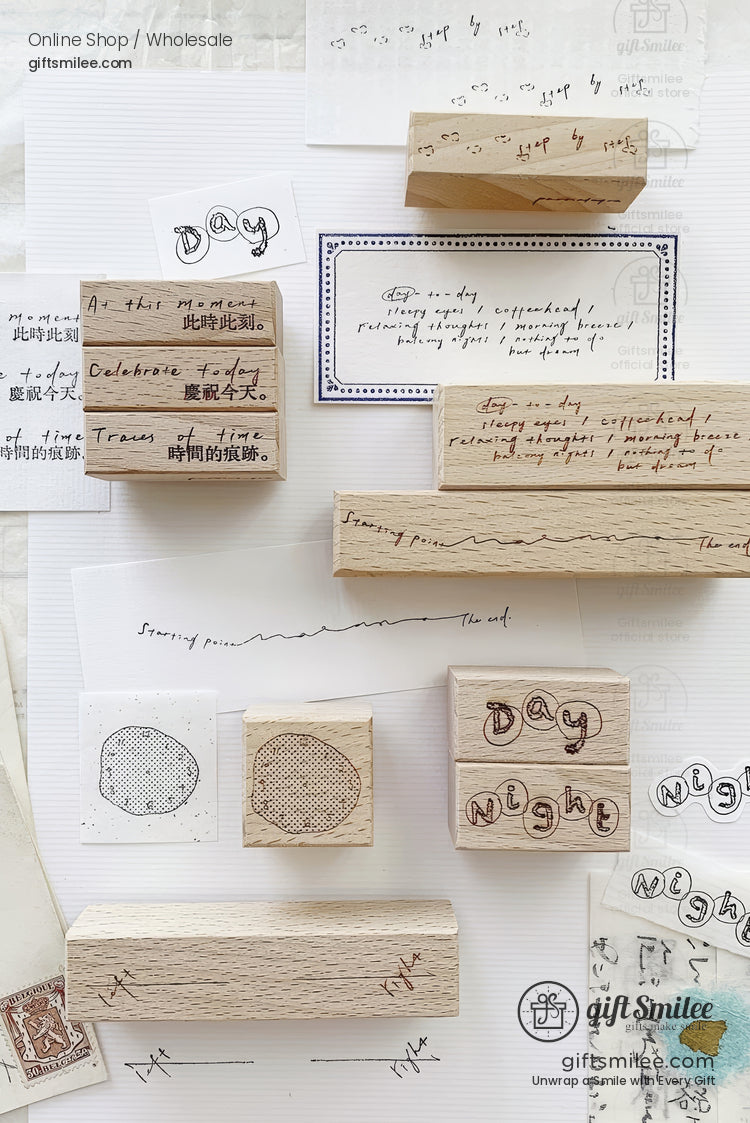 Online Shop / Wholesale
giftsmilee.com
gift Smilee
Giftsmilee
official store
step by step
step by step
step by step
Day
At this moment
此時此刻。
Celebrate today
慶祝今天。
Traces of time
時間的痕跡。
moment
此時此刻
today
慶祝今天。
of time
時間的痕跡。
day - to - day
sleepy eyes / coffeehead /
relaxing thoughts / morning breeze /
balcony nights / nothing to do
but dream
day - to - day
sleepy eyes / coffeehead /
relaxing thoughts / morning breeze
balcony nights / nothing to do
but dream
Starting point The end
Starting point The end.
Giftsmilee
official store
Day
Night
Night
Night
left right
left right
BELGIQUE
gift Smilee
gifts make smile
giftsmilee.com
Unwrap a Smile with Every Gift